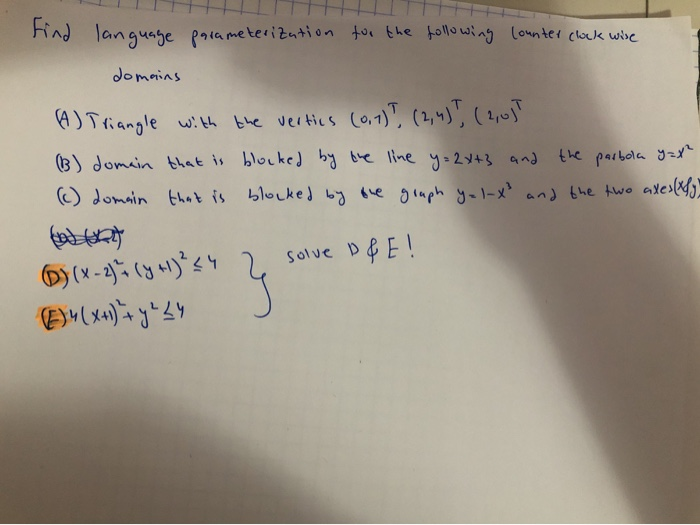 Find language parameterization for the following Counter clock wise
domains
(A) Triangle with the vertics (0,1)ᵀ, (2,4)ᵀ, (2,0)ᵀ
(B) domain that is blocked by the line y=2x+3 and the parbola y=x²
(C) domain that is blocked by the graph y=1-x³ and the two axes (x&y)
(D) (x-2)²+(y+1)²≤4
(E) 4(x+1)²+y²≤4
solve D & E!